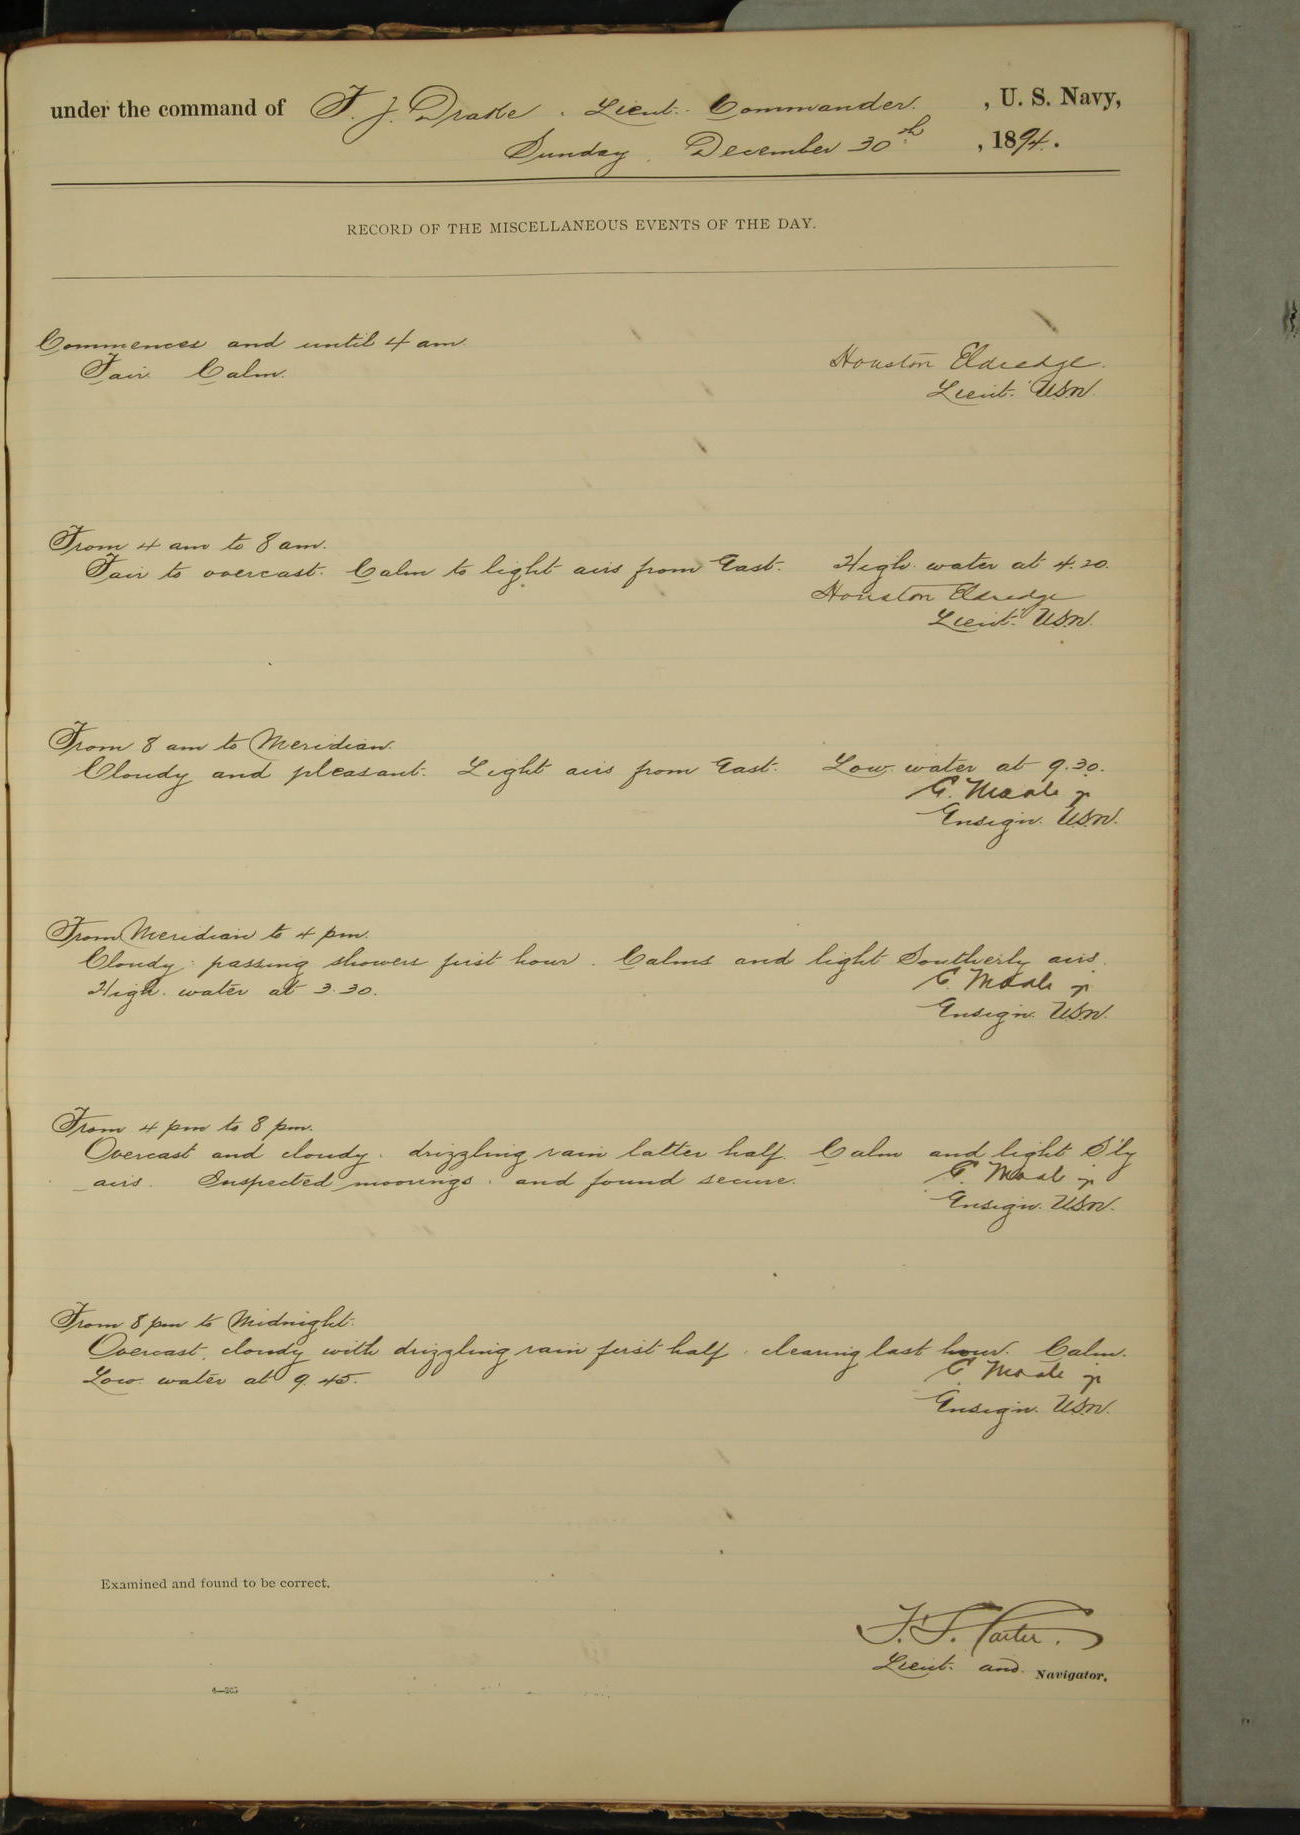 under the command of F. J. Drake, Lieut. Commander, U. S. Navy,
Sunday, December 30th, 1894.
RECORD OF THE MISCELLANEOUS EVENTS OF THE DAY.
Commences and until 4 am.
Fair. Calm.
Houston Eldredge.
Lieut. U.S.N.
From 4 am to 8 am.
Fair to overcast. Calm to light airs from East. High water at 4.20.
Houston Eldredge
Lieut. U.S.N.
From 8 am to Meridian.
Cloudy and pleasant. Light airs from East. Low water at 9.30.
E. Moale jr
Ensign. U.S.N.
From Meridian to 4 pm.
Cloudy: passing showers first hour. Calms and light Southerly airs.
High water at 3.30.
E. Moale jr
Ensign. U.S.N.
From 4 pm to 8 pm.
Overcast and cloudy. drizzling rain latter half. Calm and light S'ly
airs. Inspected moorings. and found secure.
E. Moale jr
Ensign. U.S.N.
From 8 pm to Midnight.
Overcast, cloudy with drizzling rain first half. clearing last hour. Calm.
Low water at 9.45.
E. Moale jr
Ensign. U.S.N.
Examined and found to be correct.
F. S. Carter.
Lieut. and Navigator.